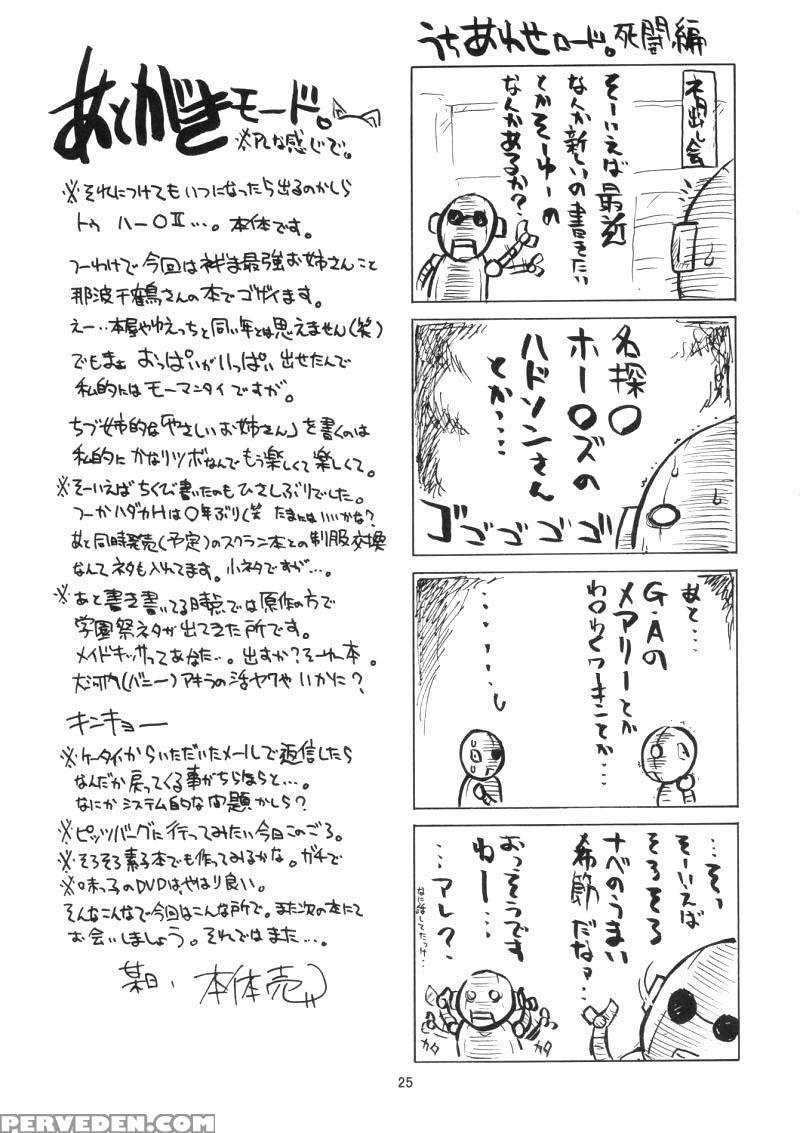 うちあわせロード。死闘編
ネタ出し会
そーいえば最近
なんか新しいの書きたい
とかそーゆーの
なんかあるか?
名探〇
ホー〇ズの
ハドソンさん
とか‥‥
ゴゴゴゴゴ
あと…
G・Aの
メアリーとか
わ〇わくワーキンことか…
…そっ
そーいえば
そろそろ
ナベのうまい
季節だなァ…
おっそうです
ねー…
…アレ?
なに話してたっけ…
カタ
カタ
あとがきモード。
※PLな感じで。
※それにつけてもいつになったら出るのかしら
トゥ ハー〇Ⅱ…。本体です。
つーわけで今回はネギま最強お姉さんこと
那波千鶴さんの本でゴザイます。
えー‥本屋やゆえっちと同い年とは思えません(笑)
でもまぁ おっぱいがいっぱい出せたんで
私的にはモーマンタイですが。
ちづ姉的な「やさしいお姉さん」を書くのは
私的にかなりツボなんでもう楽しくて楽しくて。
※そーいえばちくび書いたのもひさしぶりでした。
つーかハダカHは〇年ぶり(笑 たまにはいいかな?
あと同時発売(予定)のスクラン本との制服交換
なんてネタも入れてます。小ネタですが…。
※あと書き書いてる時点では原作の方で
学園祭ネタが出てきた所です。
メイドキッサってあなた…。出すか?そーゆー本。
大河内(バニー)アキラの活ヤクやいかに?
キンキョー
※ケータイからいただいたメールで返信したら
なんだか戻ってくる事がちらほらと…。
なにかシステム的な問題かしら?
※ピッツバーグに行ってみたい今日このごろ。
※そろそろ素子本でも作ってみるかな。ガチで
※味っ子のDVDは、やはり良い。
そんなこんなで今回はこんな所で。また次の本にて
お会いしましょう。それではまた…。
某日、本体売
25
PERVEDEN.COM